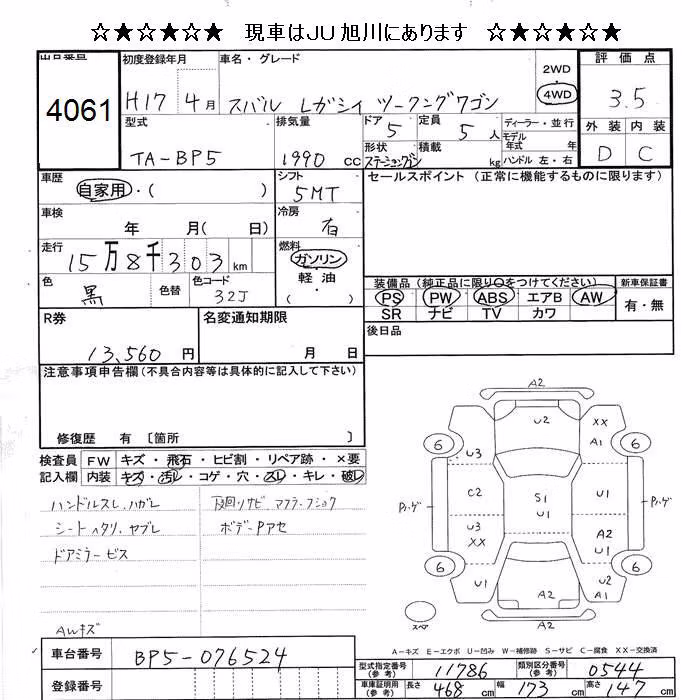 ☆★☆★☆★ 現車はJU旭川にあります ☆★☆★☆★
出品番号 初度登録年月 車名・グレード 2WD 4WD 評価点
4061 H17 4月 スバル レガシィ ツーリングワゴン 3.5
型式 排気量 ドア 定員 ディーラー・並行 外装 内装
TA-BP5 1990 cc 5 5人 モデル年式 年 D C
形状 積載 ハンドル 左・右
ステーションワゴン kg
車歴 シフト セールスポイント (正常に機能するものに限ります)
自家用・( ) 5MT
車検 冷房
年 月( 日) 有
走行 燃料
15万8千303 km ガソリン
色 色替 色コード 軽・油
黒 32J ( )
装備品(純正品に限り○をつけてください) 新車保証書
PS PW ABS エアB AW 有・無
SR ナビ TV カワ
R券 名変通知期限 後日品
13,560 円 月 日
注意事項申告欄(不具合内容等は具体的に記入して下さい)
修復歴 有 〔箇所 〕
検査員 FW キズ・飛石・ヒビ割・リペア跡・×要
記入欄 内装 キズ・汚レ・コゲ・穴・スレ・キレ・破レ
ハンドルスレ、ハガレ 下回リサビ マフラーフショク
シートヘタリ、ヤブレ ボデーPアセ
ドアミラービス
AWキズ
A2
U2 XX
A1
6 U3 6
Pハゲ C2 S1 U1 Pハゲ
U1
U3 A2
XX U1
6 6
U1 A2 U2
A1
スペア A2
A-キズ E-エクボ U-凹み W-補修跡 S-サビ C-腐食 XX-交換済
車台番号 BP5-076524
型式指定番号(参考) 11786 類別区分番号(参考) 0544
登録番号 車庫証明用(参考) 長さ 468 cm 幅 173 cm 高さ 147 cm